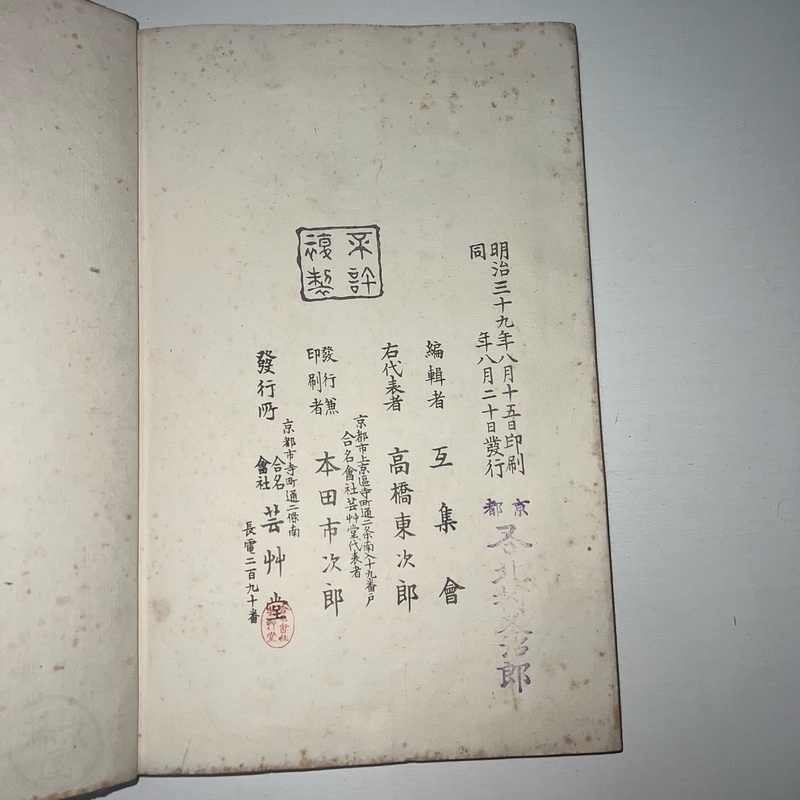 明治三十九年八月十五日印刷
同年八月二十日發行
不許
複製
編輯者 互集會
右代表者 高橋東次郎
京都市上京區寺町通二条南入十九番戸
合名會社芸艸堂代表者
發行兼
印刷者 本田市次郎
京都市寺町通二條南
發行所 合名會社 芸艸堂
長電二百九十番
合名會社
芸艸堂
京都
治郎